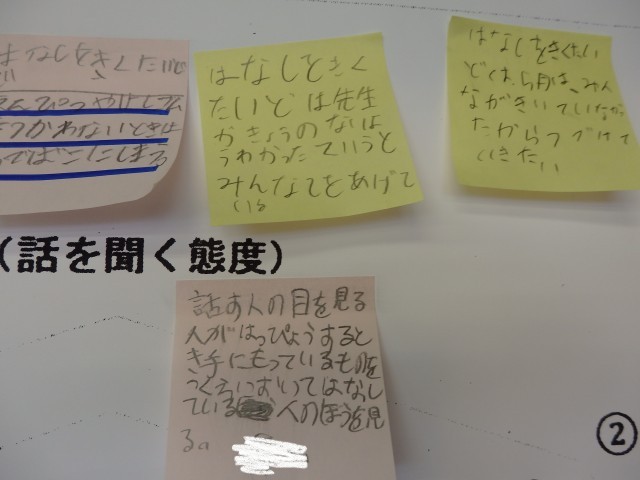 はなしをきくたいど
えんぴつやけしゴム
つかわないときは
ふでばこにしまう
はなしをきく
たいどは先生
がきょうのないよ
うわかったていうと
みんなてをあげて
いる
はなしをきくたい
ど
みん
ながきいていなか
たからつづけて
いきたい
(話を聞く態度)
話す人の目を見る
人がはっぴょうすると
き手にもっているものを
つくえにおいてはなし
ている 人のほうを見
る。
②